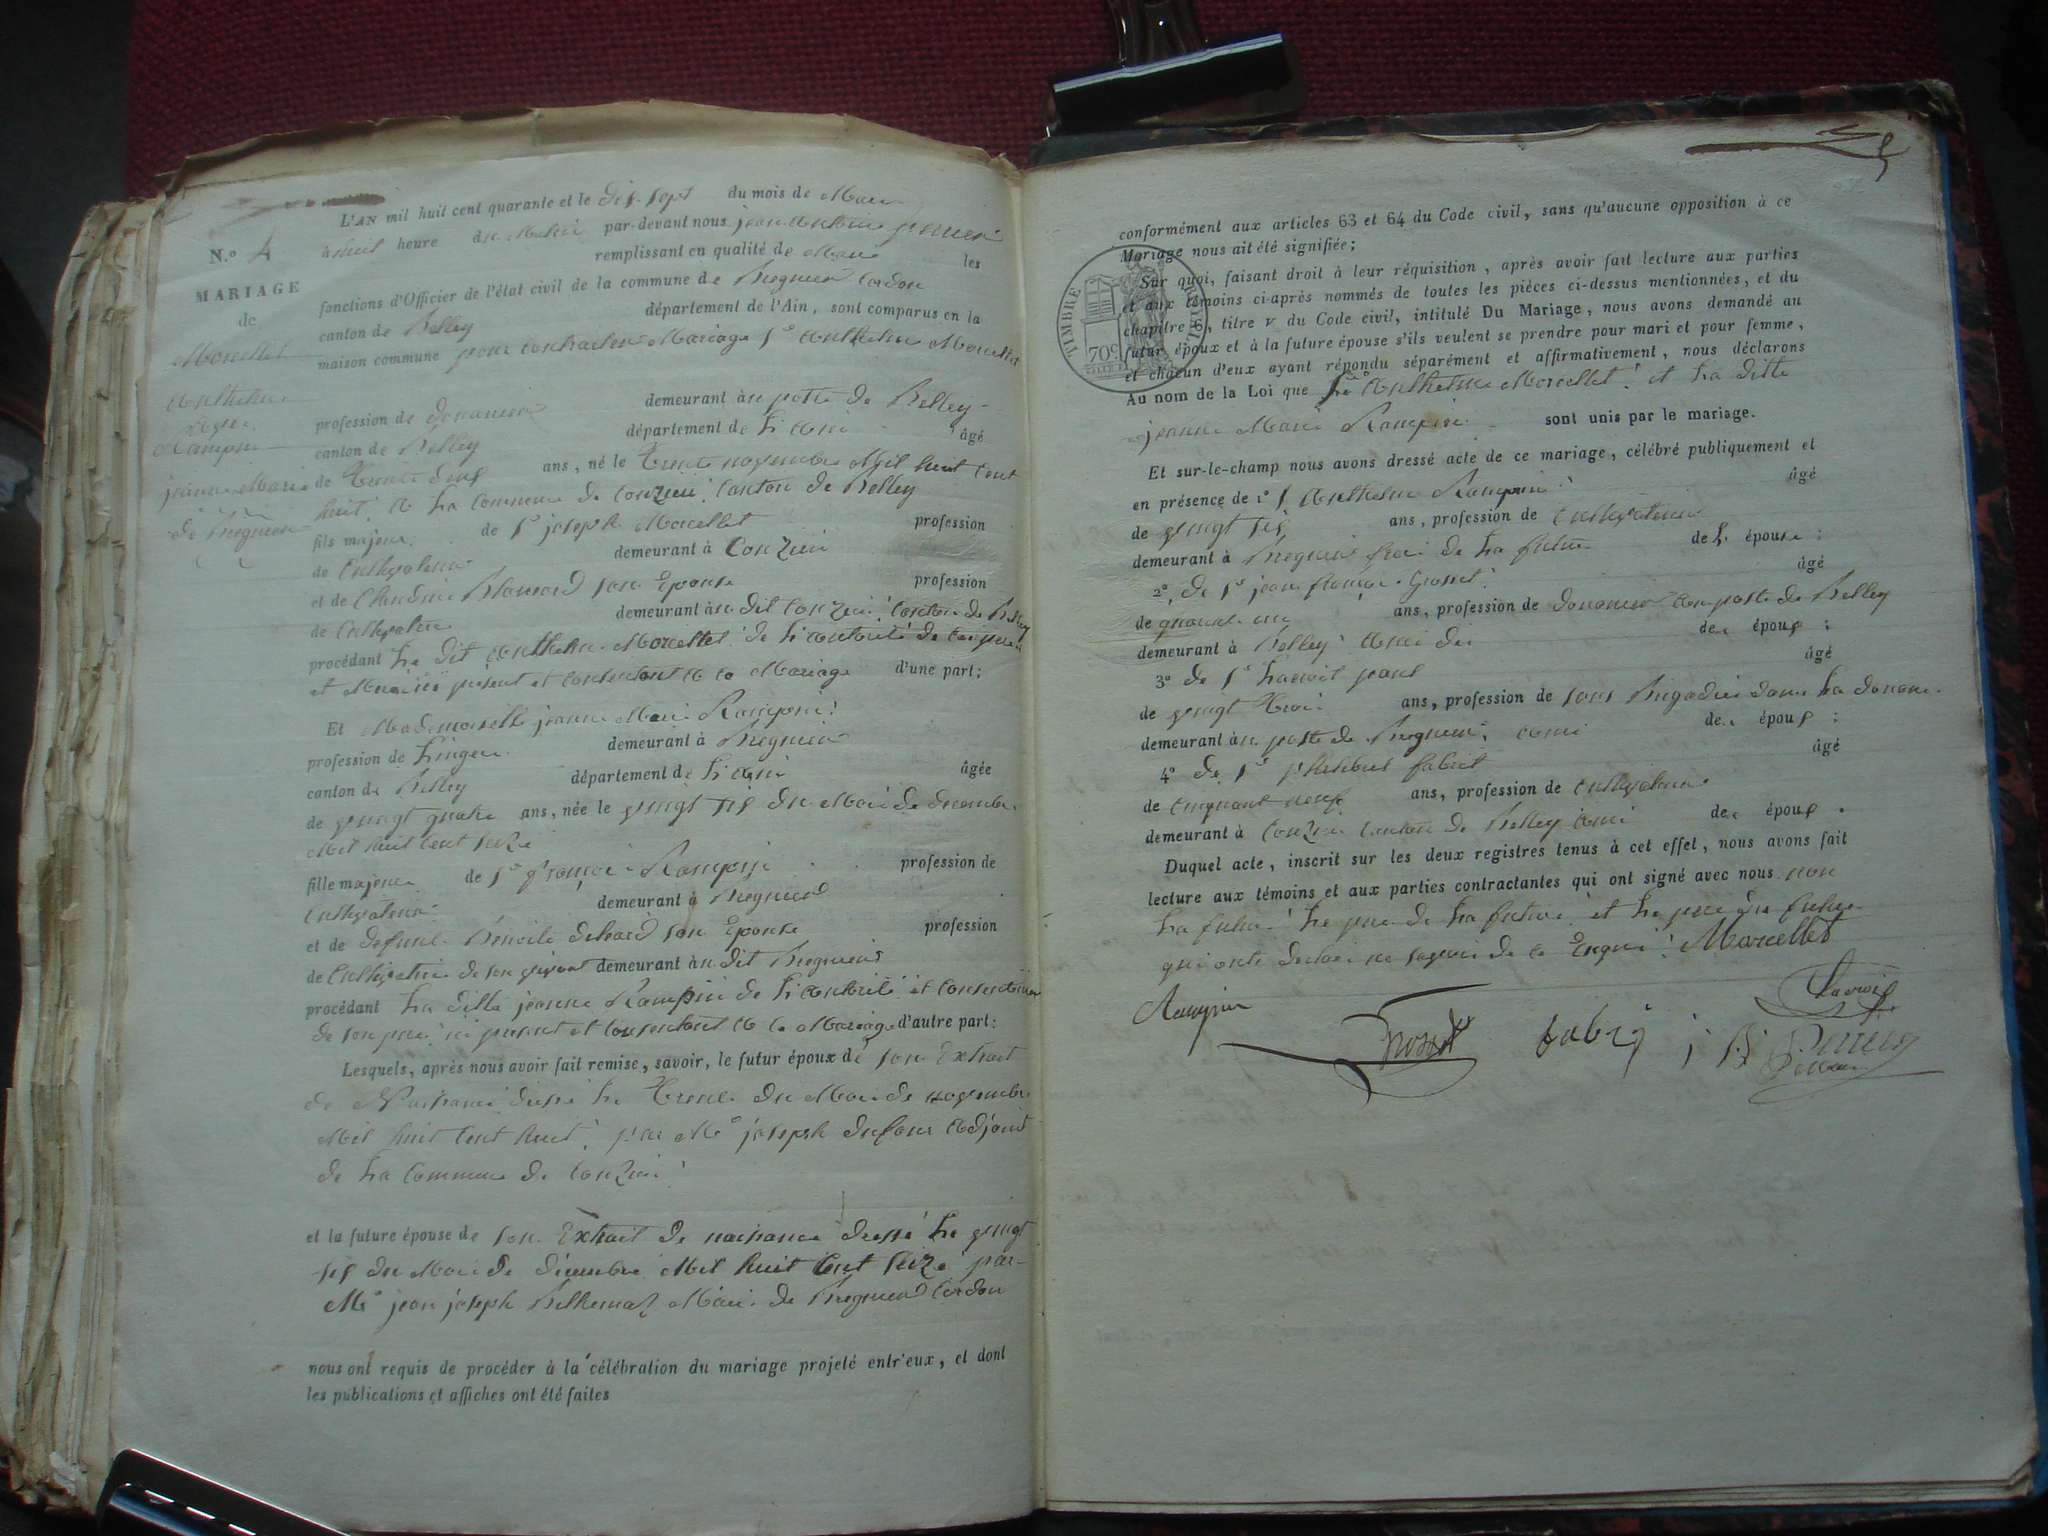 L'AN mil huit cent quarante et le dix sept du mois de Mars
N.º 4
à huit heure du Matin par-devant nous jean antoine
remplissant en qualité de Maire les
MARIAGE
fonctions d'Officier de l'état civil de la commune de Bregnier Cordon
de
canton de Belley département de l'Ain, sont comparus en la
Morcellet
maison commune pour contracter Mariage Sr anthelme Morcellet
anthelme
profession de douanier demeurant au poste de Belley
et
Rampin
canton de Belley département de L'ain âgé
jeanne Marie
de Trente deux ans, né le Trente novembre Mil huit Cent
de Bregnier
huit, a La Commune de Conzieu Canton de Belley
fils majeur de Sr joseph Morcellet profession
de Cultivateur demeurant à Conzieu
et de Claudine son Epouse profession
de Cultivatrice demeurant au dit Conzieu Canton de Belley
procédant Le dit anthelme Morcellet de L'autorité de
et present et Consentant a ce Mariage d'une part;
Et Mademoiselle jeanne Marie Rampin
profession de Lingere demeurant à Bregnier
canton de Belley département de L'ain âgée
de vingt quatre ans, née le vingt six du Mois de decembre
Mil huit Cent seize
fille majeure de Sr françois Rampin profession de
Cultivateur demeurant à Bregnier
et de defunte Benoite son Epouse profession
de Cultivatrice de son vivant demeurant au dit Bregnier
procédant La ditte jeanne Rampin de L'autorité et Consentement
de son pere ici present et Consentant a ce Mariage d'autre part:
Lesquels, après nous avoir fait remise, savoir, le futur époux de son Extrait
de Naissance dressé Le Trente du Mois de novembre
Mil huit Cent huit, par Mr joseph dufour adjoint
de La Commune de Conzieu
et la future épouse de son Extrait de naissance dressé Le vingt
six du Mois de decembre Mil huit Cent seize par
Mr jean joseph Maire de Bregnier Cordon
nous ont requis de procéder à la célébration du mariage projeté entr'eux, et dont
les publications et affiches ont été faites
conformément aux articles 63 et 64 du Code civil, sans qu'aucune opposition à ce
Mariage nous ait été signifiée;
Sur quoi, faisant droit à leur réquisition, après avoir fait lecture aux parties
et aux témoins ci-après nommés de toutes les pièces ci-dessus mentionnées, et du
chapitre 6, titre V du Code civil, intitulé Du Mariage, nous avons demandé au
futur époux et à la future épouse s'ils veulent se prendre pour mari et pour femme,
et chacun d'eux ayant répondu séparément et affirmativement, nous déclarons
TIMBRE ROYAL
70c
Au nom de la Loi que Le Sr Anthelme Morcellet et La ditte
jeanne Marie Rampin sont unis par le mariage.
Et sur-le-champ nous avons dressé acte de ce mariage, célébré publiquement et
en présence de 1º Sr Anthelme Rampin âgé
de vingt six ans, profession de Cultivateur
demeurant à Bregnier frere de La future de L' épouse;
2º de Sr jean françois Grosset âgé
de quarante un ans, profession de douanier au poste de Belley
demeurant à Belley ami de époux;
3º de Sr Lacroix âgé
de vingt Trois ans, profession de sous Brigadier dans La douane
demeurant au poste de Bregnier, ami de époux;
4º de Sr fabrit âgé
de Cinquante neuf ans, profession de Cultivateur
demeurant à Conzieu Canton de Belley ami de époux.
Duquel acte, inscrit sur les deux registres tenus à cet effet, nous avons fait
lecture aux témoins et aux parties contractantes qui ont signé avec nous non
La future Le pere de La future et Le pere du futur
qui ont declaré ne savoir de ce Enquis Morcellet
Rampin Grosset fabrit Lacroix